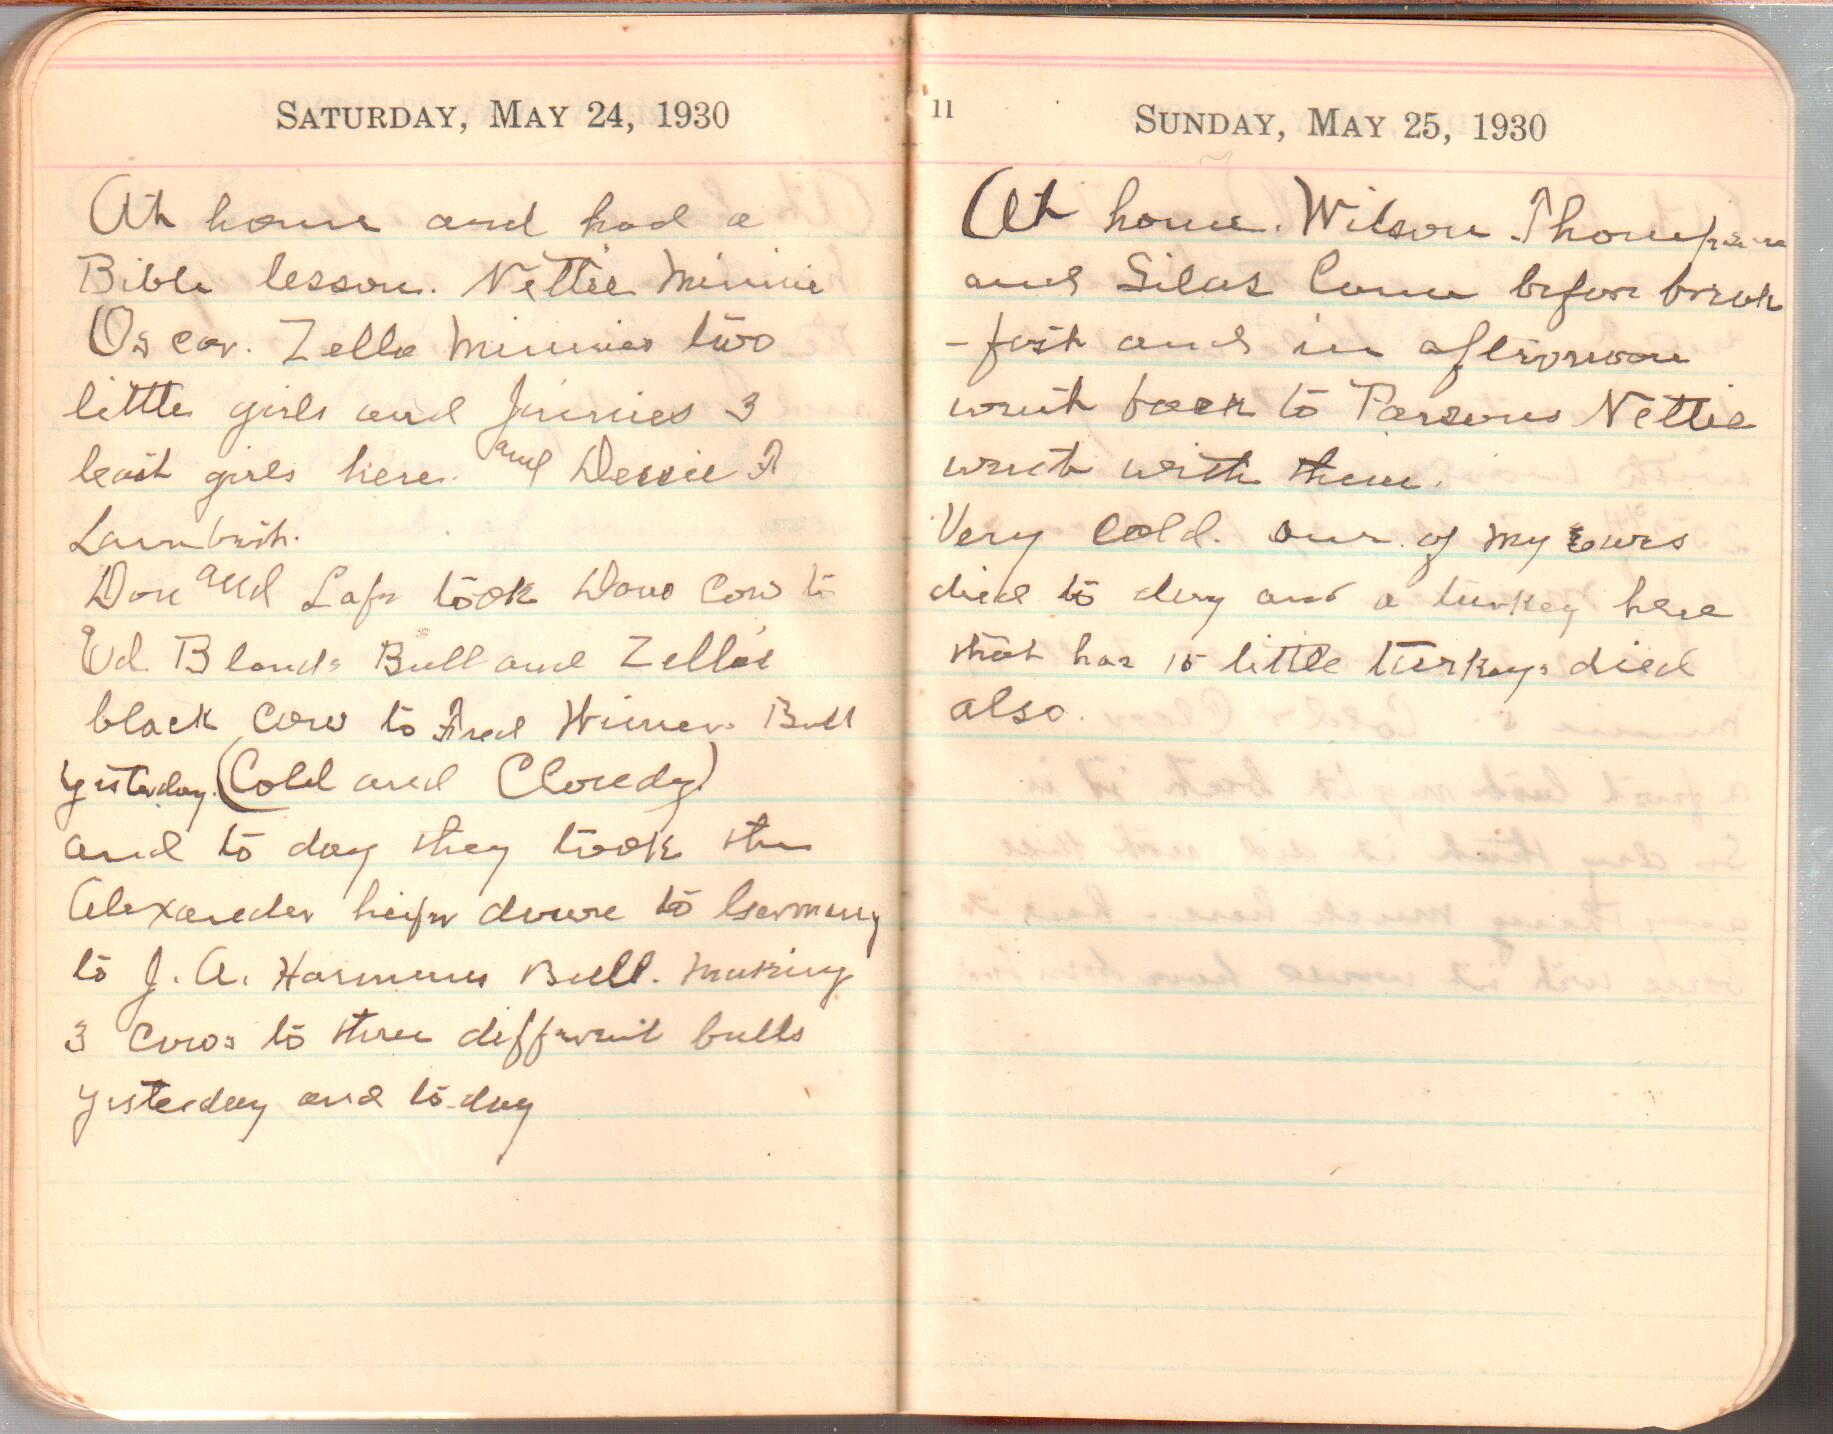 SATURDAY, MAY 24, 1930
At home and had a
Bible lesson. Nettie Minnie
Oscar. Zella Minnies two
little girls and Jinnies 3
least girls here. and Dessie F
Lambert.
Don and Lafe took Dons Cow to
Ed Blands Bull and Zella's
black cow to Fred Wimers Bull
yesterday. (Cold and Cloudy)
and to day they took the
Alexander heifer down to Germany
to J. A. Harmans Bull. making
3 Cows to three different bulls
yesterday and to-day
11
SUNDAY, MAY 25, 1930
At home. Wilson Thompson
and Silas Come before break
-fast and in afternoon
went back to Parsons Nettie
went with them.
Very Cold. one of my ewes
died to day and a turkey here
that has 15 little turkeys died
also.